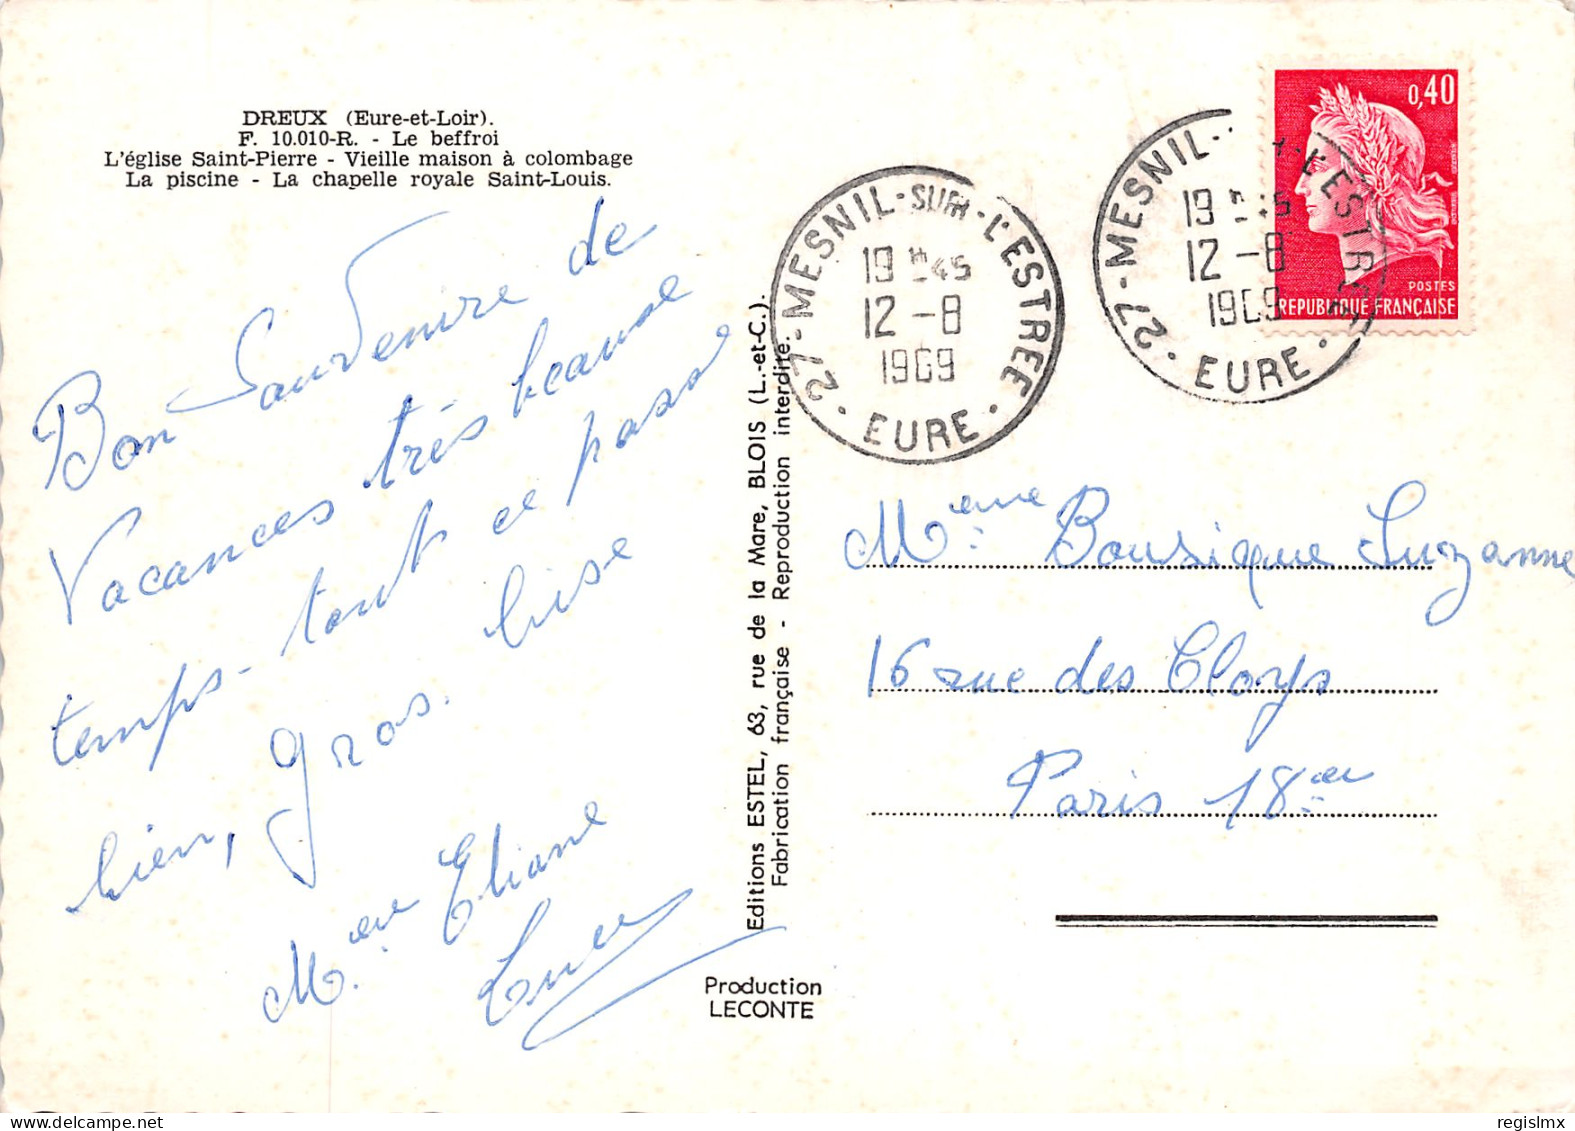 DREUX (Eure-et-Loir).
F. 10.010-R. - Le beffroi
L'église Saint-Pierre - Vieille maison à colombage
La piscine - La chapelle royale Saint-Louis.
Bon Souvenire de
Vacances très beause
temps - tout ce passé
bien, gros. bise
Mme Eliane
Editions ESTEL, 63, rue de la Mare, BLOIS (L.-et-C.).
Fabrication française - Reproduction interdite.
Production
LECONTE
27 - MESNIL-SUR-L'ESTREE
19H45
12-8
1969
· EURE ·
27 - MESNIL-SUR-L'ESTREE
19 45
12-8
1969
· EURE ·
0,40
POSTES
REPUBLIQUE FRANÇAISE
Mme Bousique Suzanne
16 rue des Cloys
Paris 18
regislmx